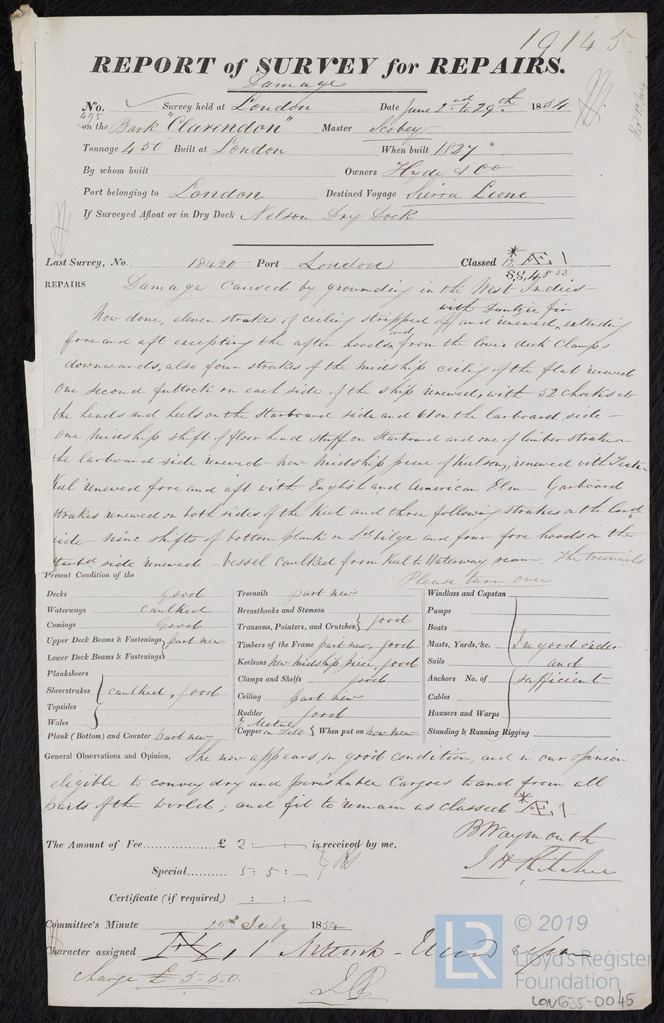 19145
REPORT of SURVEY for REPAIRS.
Damage
No. 495 Survey held at London Date June 2nd to 29th 1854
on the Bark "Clarendon" Master Scobey
Tonnage 450 Built at London When built 1827
By whom built Owners Hyde & Co
Port belonging to London Destined Voyage Sierra Leone
If Surveyed Afloat or in Dry Dock Nelson Dry Dock
Last Survey, No. 18420 Port London Classed Æ 1
REPAIRS Damage caused by grounding in the West Indies
with Dantzic fir
Now done, eleven strakes of ceiling stripped off and renewed, extending
fore and aft excepting the after hoods, and from the lower deck Clamps
downwards, also four strakes of the midship ceiling of the flat renewed
One second futtock on each side of the ship renewed, with 52 chocks to
the heads and heels on the Starboard side and 61 on the larboard side -
One midship shift of floor head stuff on Starboard and one of limber strake on
the larboard side renewed - New midship piece of Keelson, renewed with Teak
Keel renewed fore and aft with English and American Elm - Garboard
strakes renewed on both sides of the Keel and three following strakes on the larbd
side - nine shifts of bottom plank in bilge and four fore hoods on the
starbd side renewed - Vessel caulked from Keel to Waterway seam. The treenails
Please turn over
Present Condition of the
Decks good
Waterways caulked
Comings Good
Upper Deck Beams & Fastenings part new
Lower Deck Beams & Fastenings
Planksheers
Sheerstrakes caulked, good
Topsides
Wales
Plank (Bottom) and Counter part new
Treenails part new
Breasthooks and Stemson
Transoms, Pointers, and Crutches good
Timbers of the Frame part new, good
Keelsons new midship piece, good
Clamps and Shelfs good
Ceiling part new
Rudder good
Y Metal
Copper on Felt When put on now new
Windlass and Capstan
Pumps
Boats
Masts, Yards, &c. In good order
Sails and
Anchors No. of sufficient
Cables
Hawsers and Warps
Standing & Running Rigging
General Observations and Opinion, She now appears in good condition, and in our opinion
eligible to convey dry and perishable Cargoes to and from all
parts of the world; and fit to remain as classed Æ 1
B Waymouth
The Amount of Fee £ 2 : - : - is received by me,
J H Ritchie
Special 5 : 5 : -
Certificate (if required) : - :
Committee's Minute 25th July 1854
Character assigned Æ 1
Charge £ 5-5-0.
© 2019
LR
Lloyd's Register
Foundation
LON635-0045